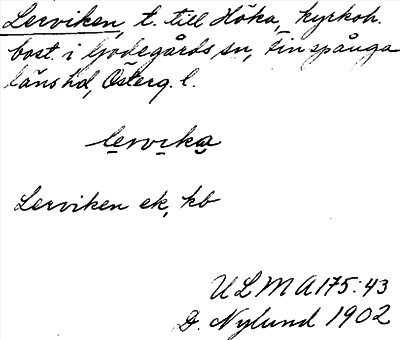 Lerviken, t. till Höka, kyrkoh.
bost. i Godegårds sn, Finspånga
läns hd, Österg. l.
lervika
Lerviken ek, kb
ULMA 175:43
D. Nylund 1902